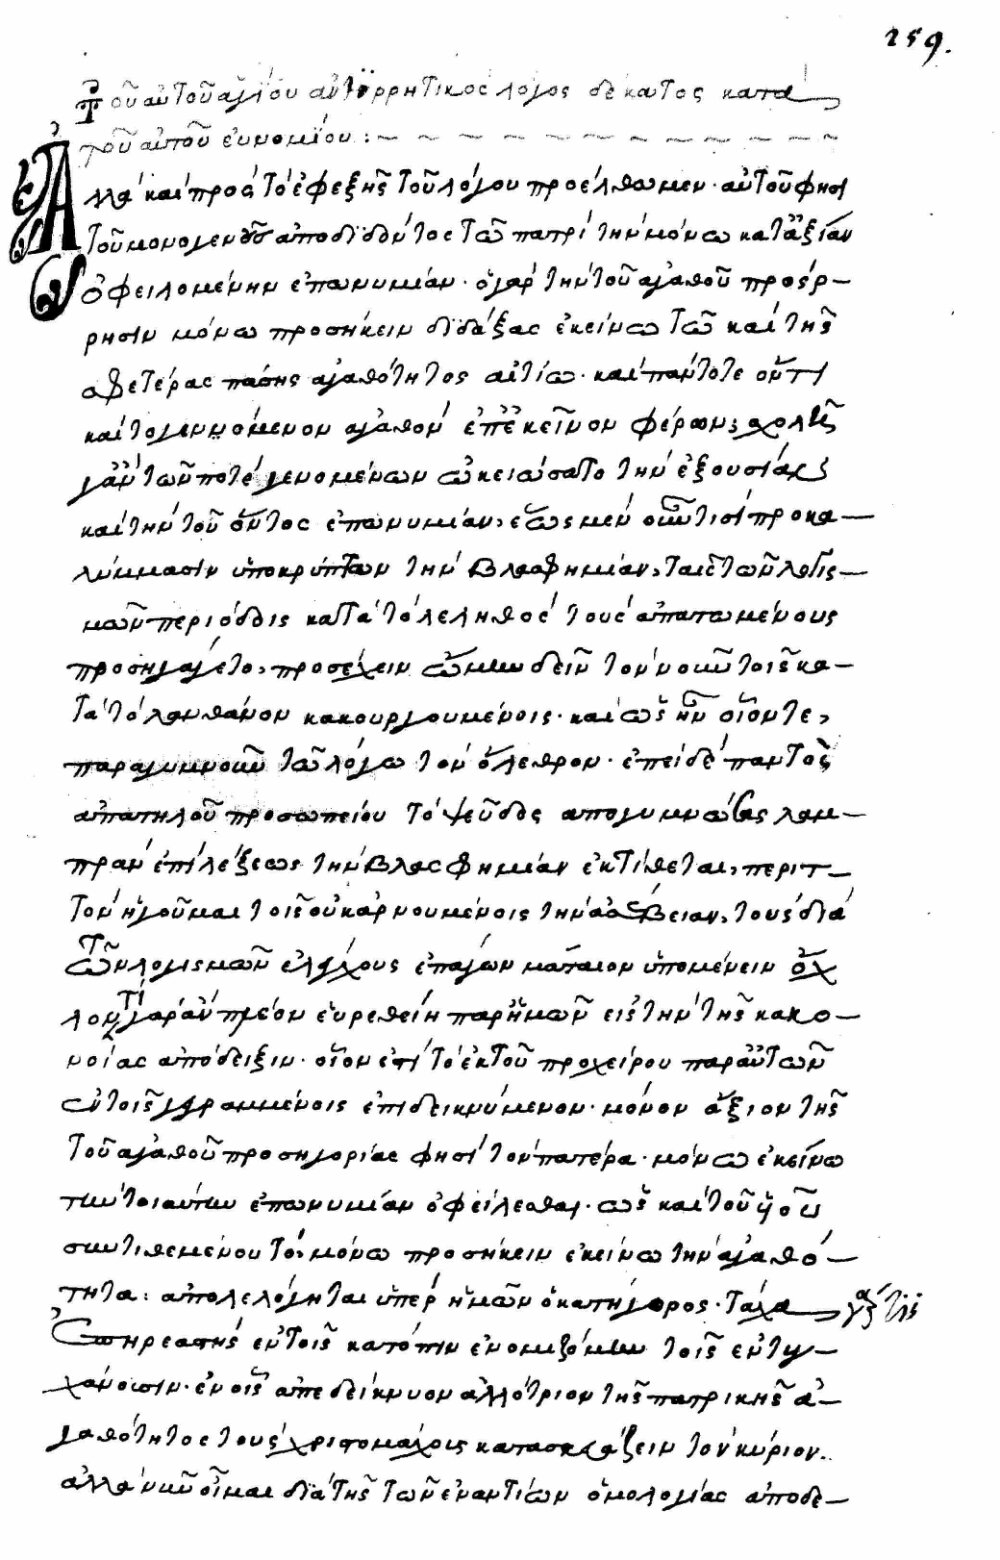 259.
Τοῦ αὐτοῦ ἁγίου ἀντιρρητικὸς λόγος δέκατος κατὰ
τοῦ αὐτοῦ εὐνομίου :~
Ἀλλὰ καὶ πρὸς τὸ ἐφεξῆς τοῦ λόγου προέλθωμεν· αὐτοῦ φησι
τοῦ μονογενοῦς ἀποδιδόντος τῶ πατρὶ τὴν μόνω κατ' ἀξίαν
ὀφειλομένην ἐπωνυμίαν· ὁ γὰρ τὴν τοῦ ἀγαθοῦ πρόσρ-
ρησιν μόνω προσήκειν διδάξας ἐκείνω τῶ καὶ τῆς
σφετέρας πάσης ἀγαθότητος αἰτίω· καὶ πάντοτε οὖν τι
καὶ τὸ γεννόμενον ἀγαθὸν ἐπ' ἐκεῖνον φέρων, σχολῆ
γ' ἂν τῶν ποτὲ γενομένων ὠκειώσατο τὴν ἐξουσίαν
καὶ τὴν τοῦ ὄντος ἐπωνυμίαν, ἕως μὲν οὖν τισὶ προκα-
λύμμασιν ὑποκρύπτων τὴν βλασφημίαν, ταῖς τῶν λογισ-
μῶν περιόδοις κατὰ τὸ λεληθὸς τοὺς ἀπατωμένους
προσηγάγετο, προσέχειν ὤμην δεῖν τὸν νοῦν τοῖς κα-
τὰ τὸ λανθάνον κακουργουμένοις· καὶ ὡς ἦν οἷόν τε,
παραγυμνοῦν τῶ λόγω τὸν ὄλεθρον· ἐπεὶ δὲ παντὸς
ἀπατηλοῦ προσωπείου τὸ ψεῦδος ἀπογυμνώσας λαμ-
πρὰν ἐπὶ λέξεως τὴν βλασφημίαν ἐκτίθεται, περιτ-
τὸν ἡγοῦμαι τοῖς οὐκ ἀρνουμένοις τὴν ἀσέβειαν, τοὺς διὰ
τῶν λογισμῶν ἐλέγχους ἐπάγων μάταιον ὑπομένειν ὄχ
λον· τί γὰρ ἂν πλέον εὑρεθείη παρ' ἡμῶν εἰς τὴν τῆς κακο-
νοίας ἀπόδειξιν· οἷον ἐστὶ τὸ ἐκ τοῦ προχείρου παρ' αὐτῶν
ἐν τοῖς γεγραμμένοις ἐπιδεικνύμενον· μόνον ἄξιον τῆς
τοῦ ἀγαθοῦ προσηγορίας φησὶ τὸν πατέρα· μόνω ἐκείνω
τὴν τοιαύτην ἐπωνυμίαν ὀφείλεσθαι· ὡς καὶ τοῦ υἱοῦ
συντιθεμένου τὸ μόνω προσήκειν ἐκείνω τὴν ἀγαθό-
τητα: ἀπολελόγηται ὑπὲρ ἡμῶν ὁ κατήγορος· τάχα
ἐπηρεαστὴς ἐν τοῖς κατόπιν ἐνομιζόμην τοῖς ἐντυ-
χάνουσιν· ἐν οἷς ἀπεδείκνυον ἀλλότριον τῆς πατρικῆς ἀ-
γαθότητος τοὺς χριστομάχοις κατασκευάζειν τὸν κύριον.
ἀλλὰ νῦν οἶμαι διὰ τῆς τῶν ἐναντίων ὁμολογίας ἀποδε-